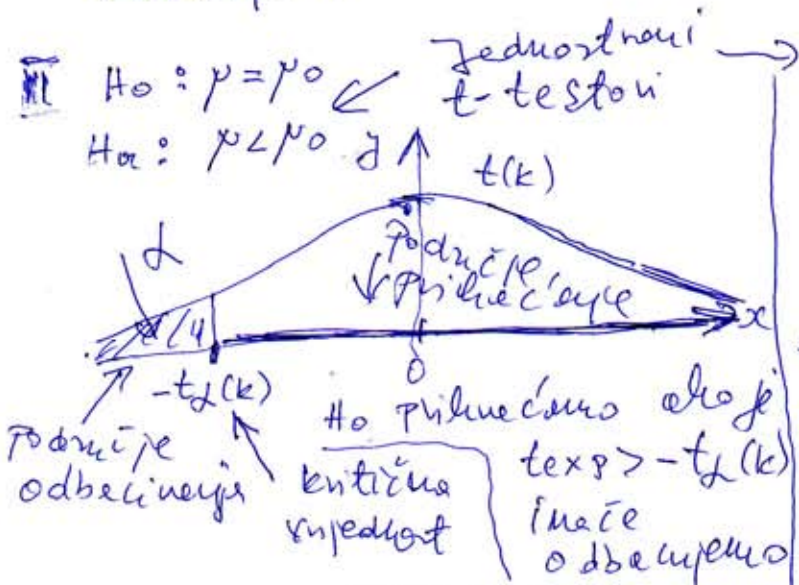 II H₀ : μ = μ₀
Jednostrani
t-testovi
Hα : μ < μ₀
y
t(k)
α
Područje
prihvaćanje
x
0
-tα(k)
Područje
odbacivanja
kritična
vrijednost
H₀ prihvaćamo ako je
texp > -tα(k)
inače
odbacujemo